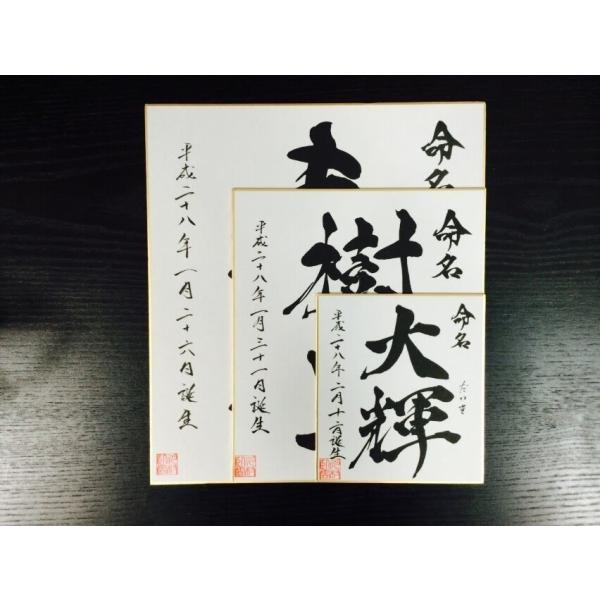 命名
平成二十八年一月二十六日誕生
命名
樹
平成二十八年一月三十一日誕生
命名
大輝
だいき
平成二十八年二月十六日誕生